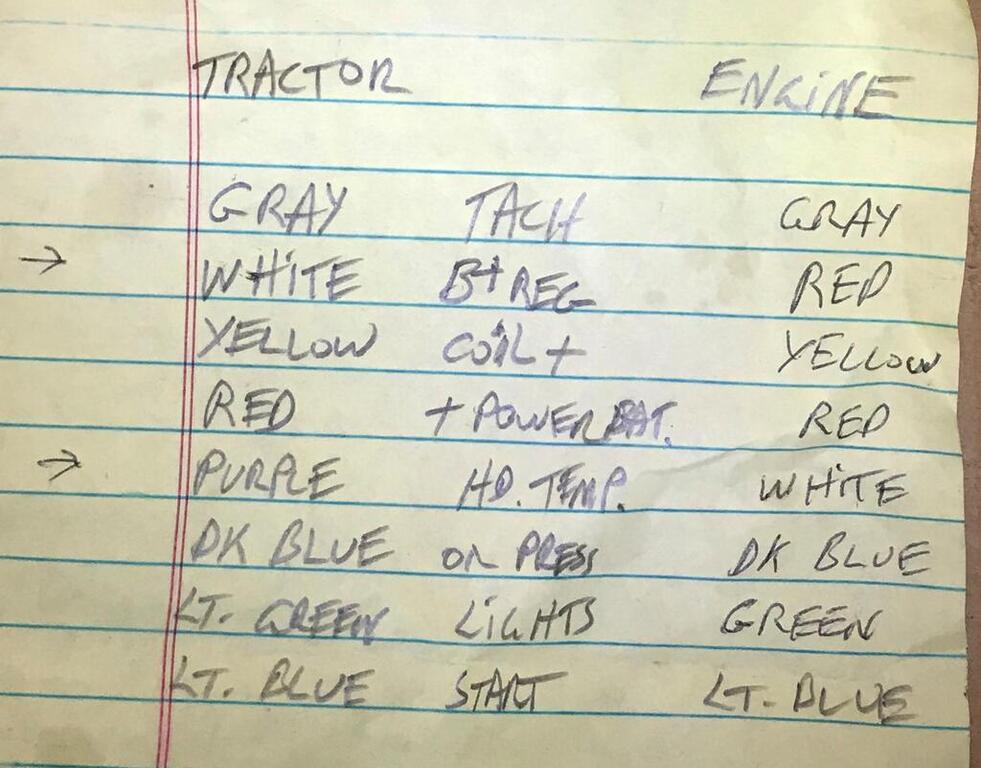 TRACTOR ENGINE
GRAY TACH GRAY
→ WHITE B+ REG RED
YELLOW COIL + YELLOW
RED + POWER BAT. RED
→ PURPLE HD. TEMP. WHITE
DK BLUE OIL PRESS DK BLUE
LT. GREEN LIGHTS GREEN
LT. BLUE START LT. BLUE